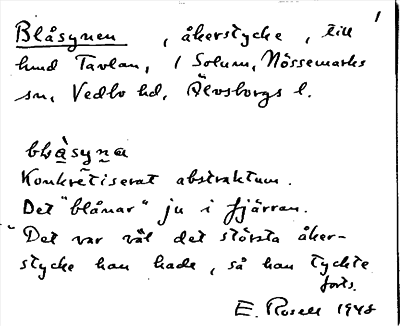 1
Blåsynen, åkerstycke, till
hmd Tavlan, 1 Solum, Nössemarks
sn, Vedbo hd, Älvsborgs l.
blå̀syna
Konkretiserat abstraktum.
Det "blånar" ju i fjärran.
"Det var väl det största åker-
stycke han hade, så han tyckte
forts.
E. Rosell 1948